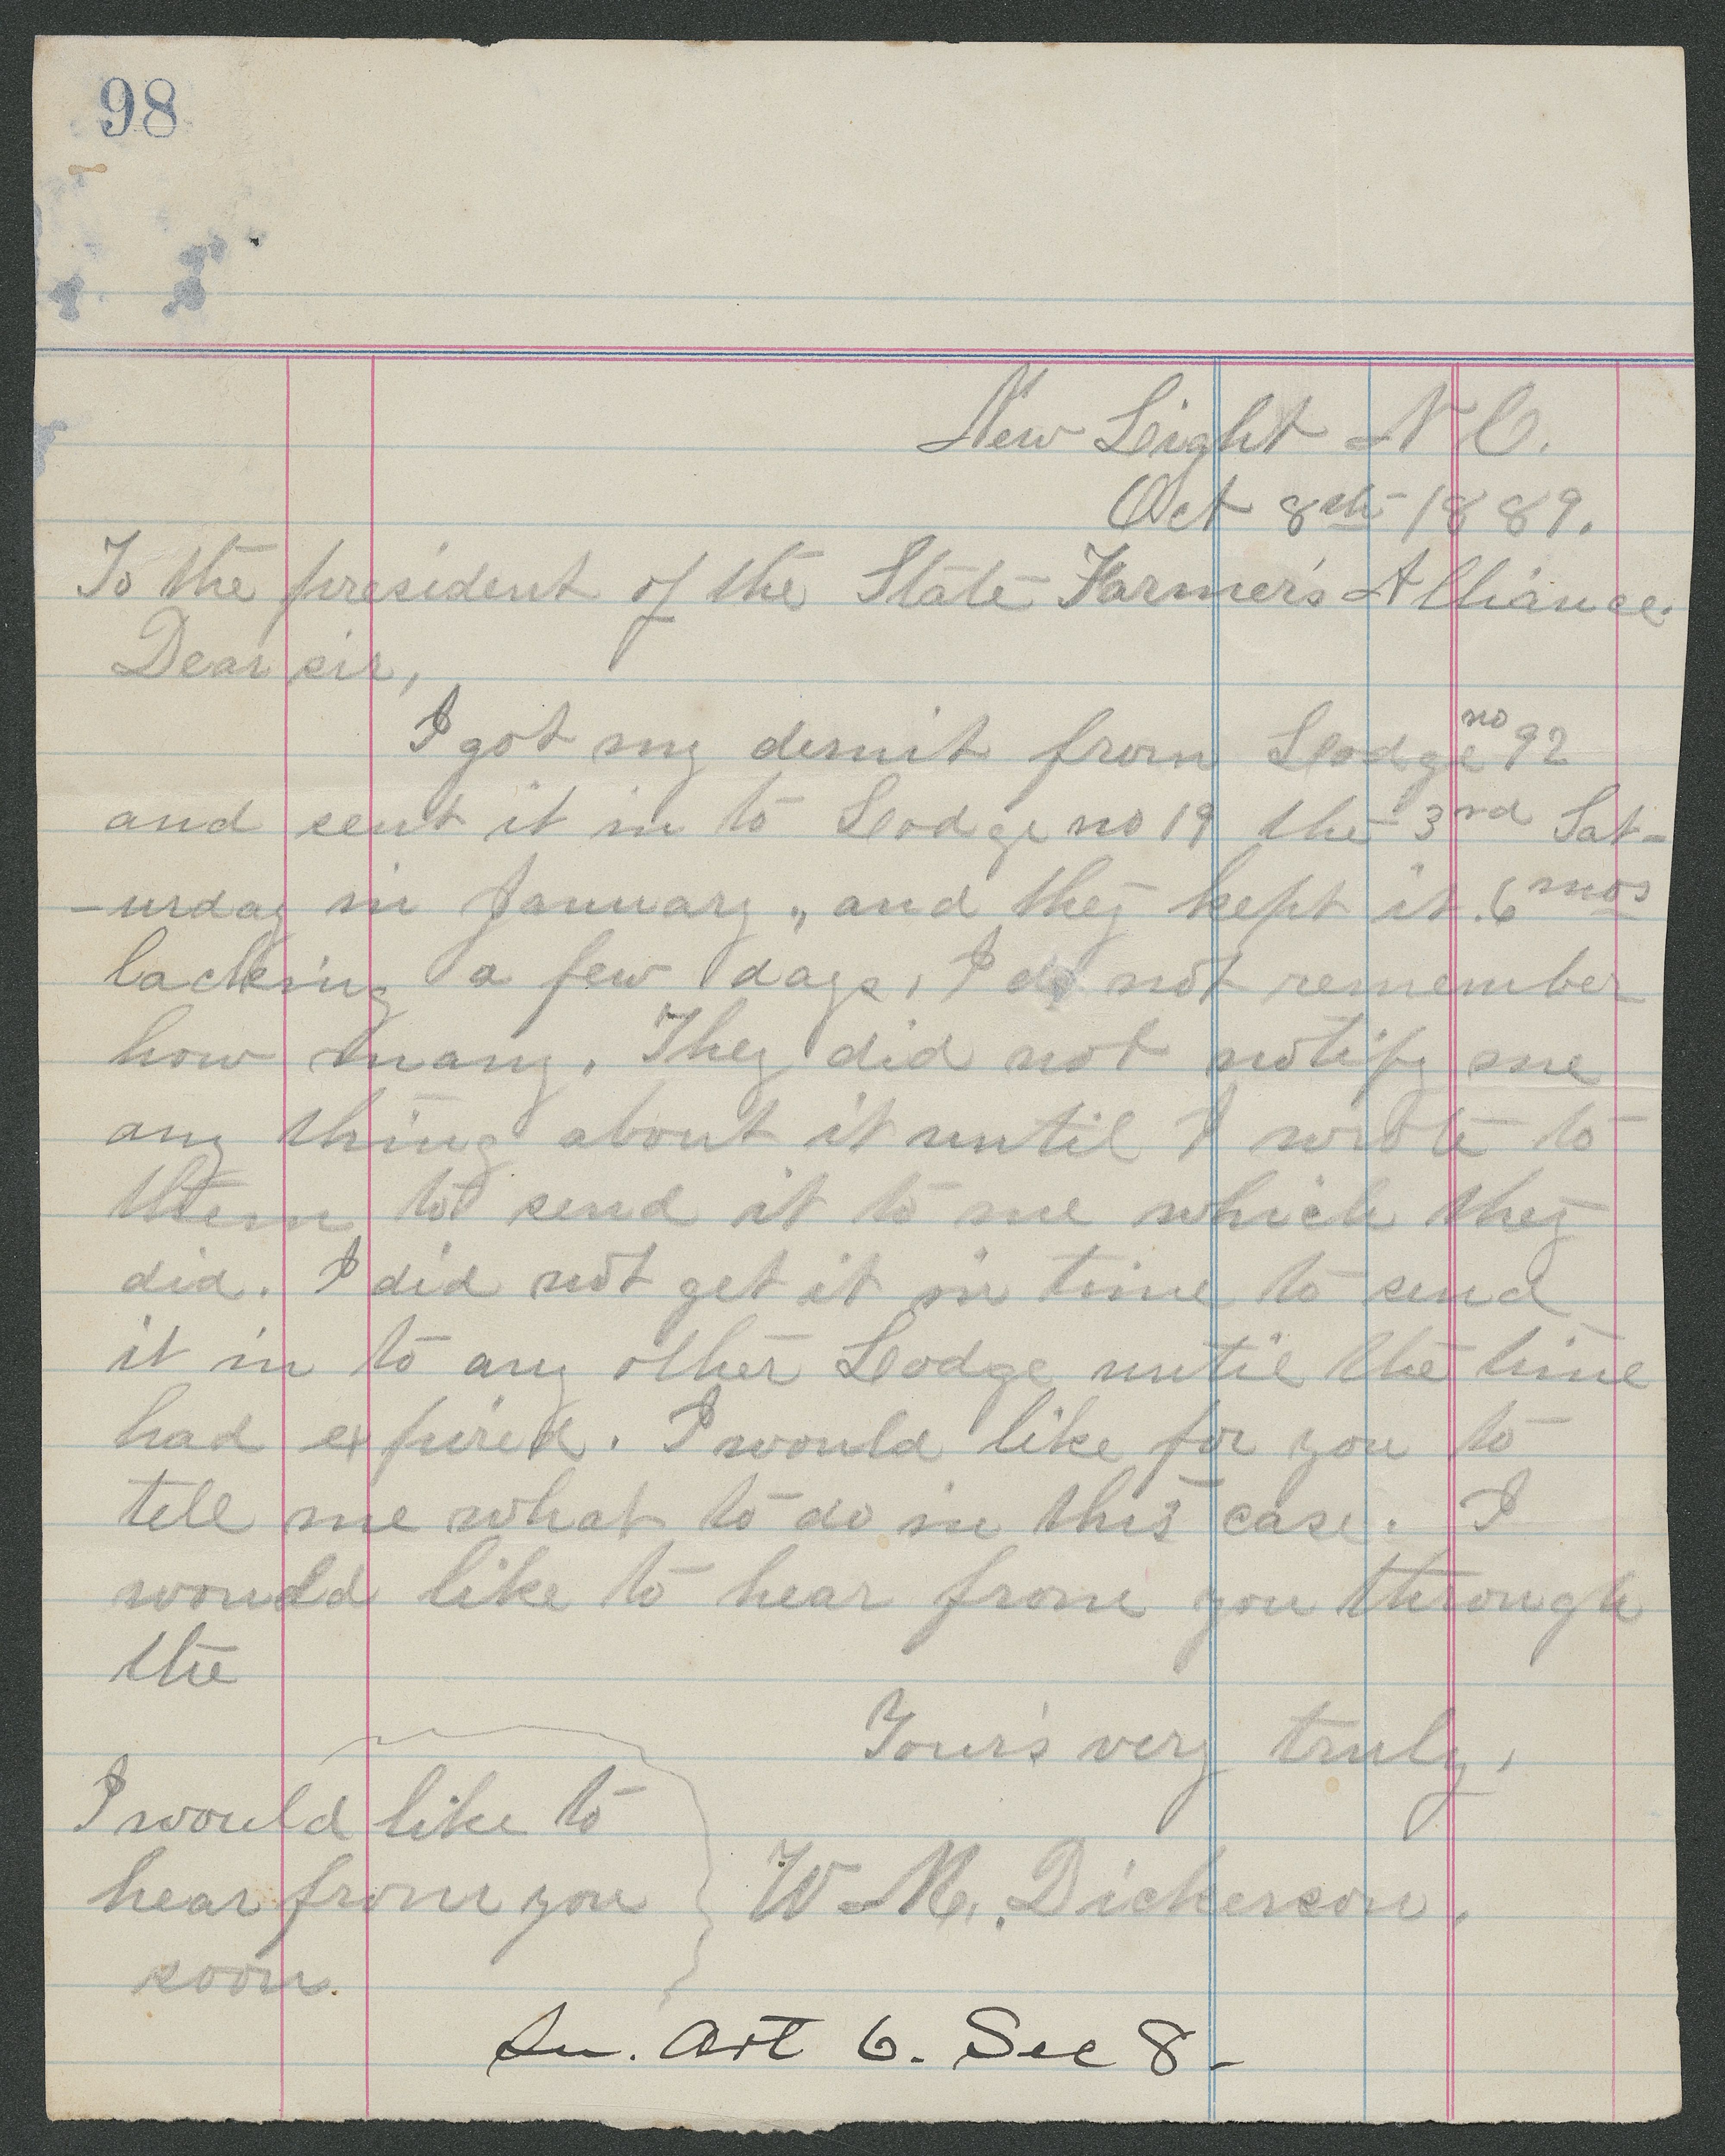 98
New Light N C.
Oct 8th 1889.
To the president of the State Farmer's Alliance.
Dear sir,
I got my demit from Lodge no 92
and sent it in to Lodge no 19 the 3rd Sat-
-urday in January, and they kept it 6 mos
lacking a few days, I do not remember
how many. They did not notify me
any thing about it until I wrote to
them to send it to me which they
did. I did not get it in time to send
it in to any other Lodge until the time
had expired. I would like for you to
tell me what to do in this case. I
would like to hear from you through
the
Your's very truly,
I would like to
hear from you
soon.
W. M. Dickerson.
Art 6. Sec 8-